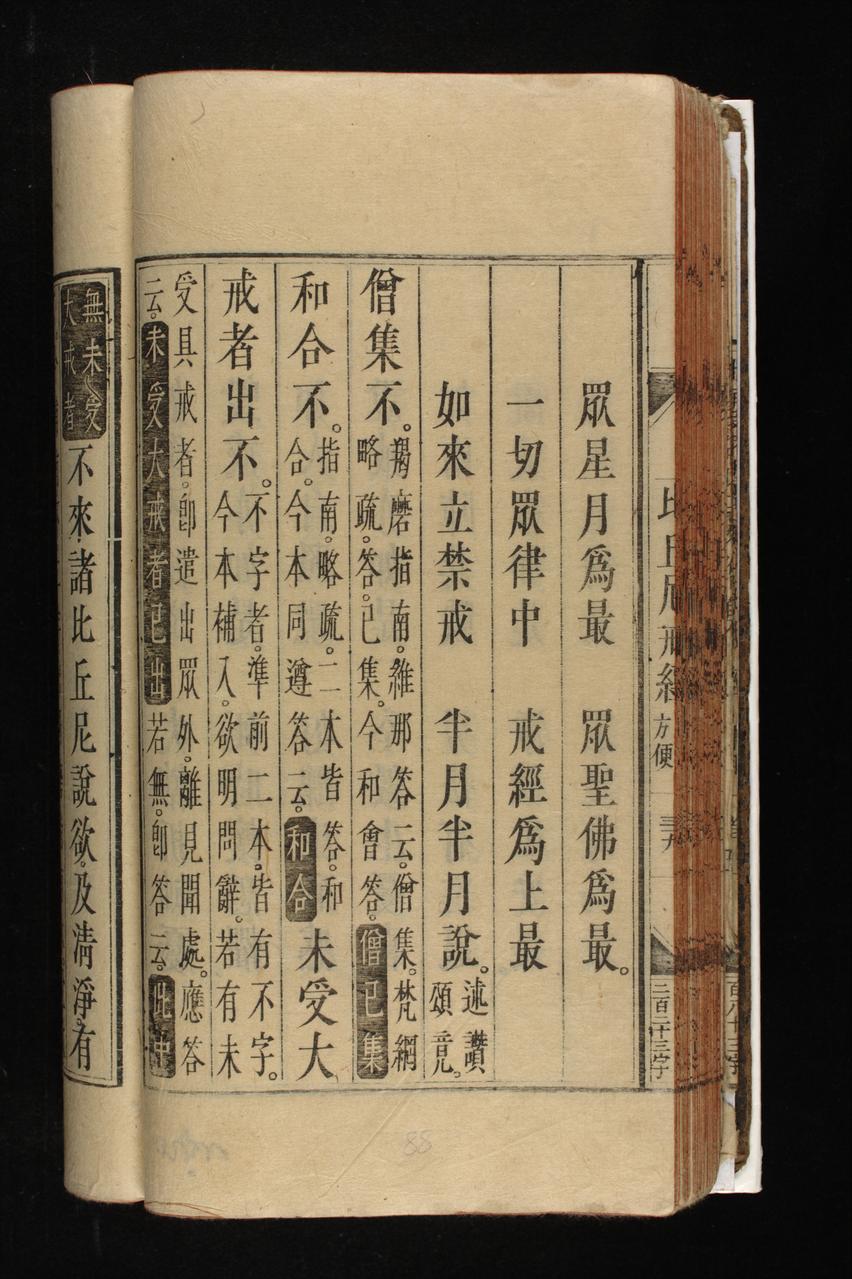 比丘尼戒經 方便 三九 二百二十三字
眾星月為最 眾聖佛為最。
一切眾律中 戒經為上最
如來立禁戒 半月半月說。述讚頌竟。
僧集不。羯磨指南。維那答云。僧集。梵網略疏。答。已集。今和會答。僧已集
和合不。指南。略疏。二本皆答。和合。今本同遵答云。和合 未受大
戒者出不。不字者。準前二本。皆有不字。今本補入。欲明問辭。若有未
受具戒者。即遣出眾外。離見聞處。應答云。未受大戒者已出 若無。即答云。此中
無未受大戒者 不來諸比丘尼說欲。及清淨。有